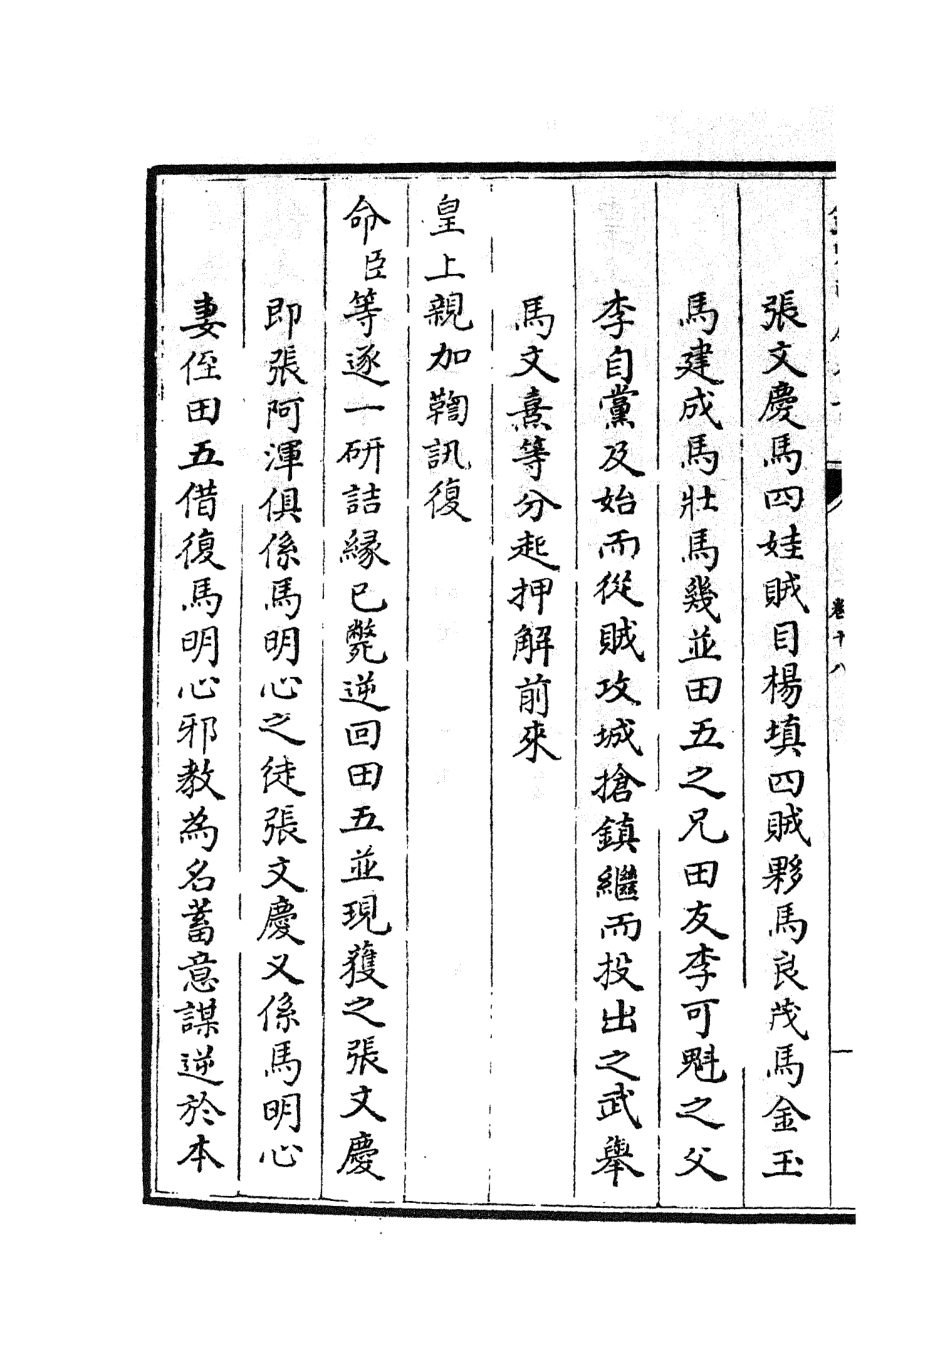 卷十八
張文慶馬四娃賊目楊填四賊夥馬良茂馬金玉
馬建成馬壯馬幾並田五之兄田友李可魁之父
李自黨及始而從賊攻城搶鎮繼而投出之武舉
馬文熹等分起押解前來
皇上親加鞫訊復
命臣等逐一研詰緣已斃逆回田五並現獲之張文慶
即張阿渾俱係馬明心之徒張文慶又係馬明心
妻侄田五借復馬明心邪教為名蓄意謀逆於本